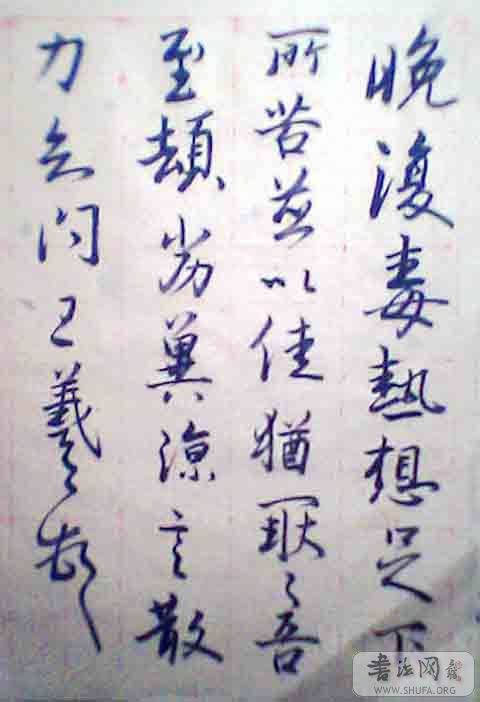 晚復毒熱想足下
所苦並以佳猶耿々吾
至頓劣冀涼言散
力知問王羲之
書法网
WWW.SHUFA.ORG